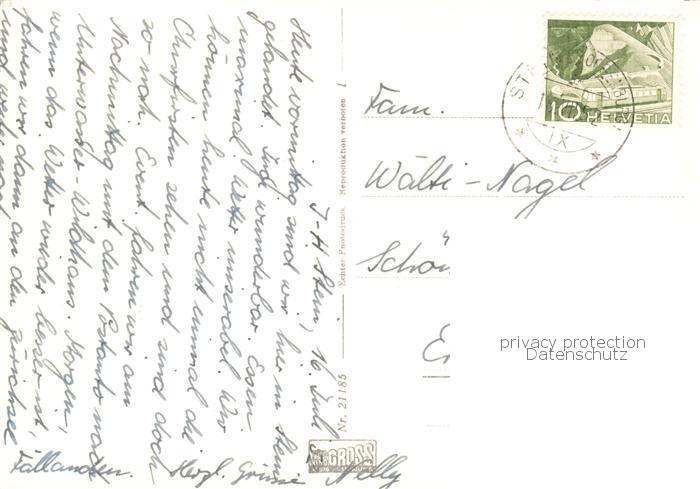 J-H Stein, 16. Juli
Heute vormittag sind wir hier in Stein
gelandet. Ist wunderbar. Essen
Wetter miserabel. Wir
können heute nicht einmal die
Churfirsten sehen und sind doch
so nah. Event. fahren wir am
Nachmittag mit dem Postauto nach
Unterwasser Wildhaus. Morgen,
wenn das Wetter wieder besser ist,
fahren wir dann an den Zürichsee
und
Fällanden. Herzl. Grüsse Nelly
Nr. 21185 Echter Photodruck Reproduktion verboten !
GROSS
10 HELVETIA
IX
Fam.
Wälti-Nagel
Schön
privacy protection
Datenschutz